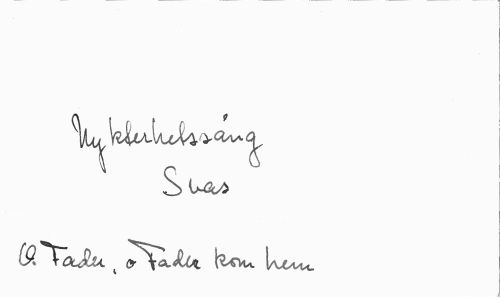 Nykterhetssång
Svas
O. Fader, o Fader kom hem